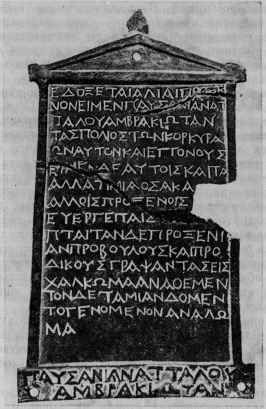 ΕΔΟΞΕΤΑΙΑΛΙΑΙΠΡΟΞΕ
ΝΟΝΕΙΜΕΝΠΑΥΣΑΝΙΑΝΑΤ
ΤΑΛΟΥΑΜΒΡΑΚΙΩΤΑΝ
ΤΑΣΠΟΛΙΟΣΤΩΝΚΟΡΚΥΡΑ
ΙΩΝΑΥΤΟΝΚΑΙΕΓΓΟΝΟΥΣ
ΕΙΜΕΝΔΕΑΥΤΟΙΣΚΑΙΤΑ
ΑΛΛΑΤΙΜΙΑΟΣΑΚΑ
ΑΛΛΟΙΣΠΡΟΞΕΝΟΙΣ
ΕΥΕΡΓΕΤΑΙΣ
ΠΤΑΙΤΑΝΔΕΠΡΟΞΕΝΙ
ΑΝΠΡΟΒΟΥΛΟΥΣΚΑΙΠΡΟ
ΔΙΚΟΥΣΓΡΑΨΑΝΤΑΣΕΙΣ
ΧΑΛΚΩΜΑΑΝΑΘΕΜΕΝ
ΤΟΝΔΕΤΑΜΙΑΝΔΟΜΕΝ
ΤΟΓΕΝΟΜΕΝΟΝΑΝΑΛΩ
ΜΑ
ΠΑΥΣΑΝΙΑΝΑΤΤΑΛΟΥ
ΑΜΒΡΑΚΙΩΤΑΝ